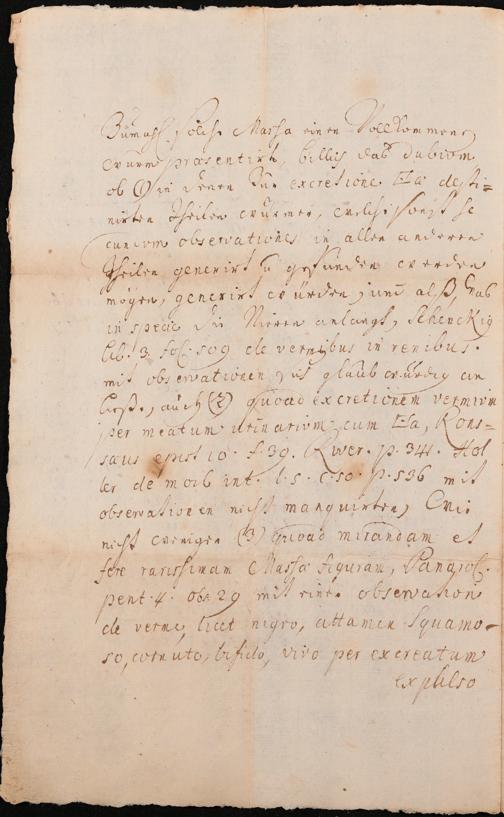 Zumahl solche Massa einen Vollkommenen
Wurm præsentirt, billig das dubium
ob (1) in denen zur excretione destinirten
nirten Theilen Würmer, welche sonst se
cundum observationes in allen anderen
Theilen generirt u gefunden werden
mögen, generirt würden, und alß, was
in specie die Nieren anlangt, Schenckig
lib. 3 fol. 509 de vermibus in renibus.
mit observationen, glaubwürdig
auch (2) quoad excretionem vermium
per meatum urinarium cum Rons=
saus epist 10. f. 39. River. p. 341. Hol
ler de morb int. l. 5. c. 50. p. 536 mit
observationen nicht manquirten, Wie
nicht weniger (3) quoad mirandam et
fere rarissimam Massæ figuram, Panarol.
pent. 4. obs 29 mit einer observation
de verme, licet nigro, attamen squamo-
so, cornuto, bifido, vivo per excreatum
expulso